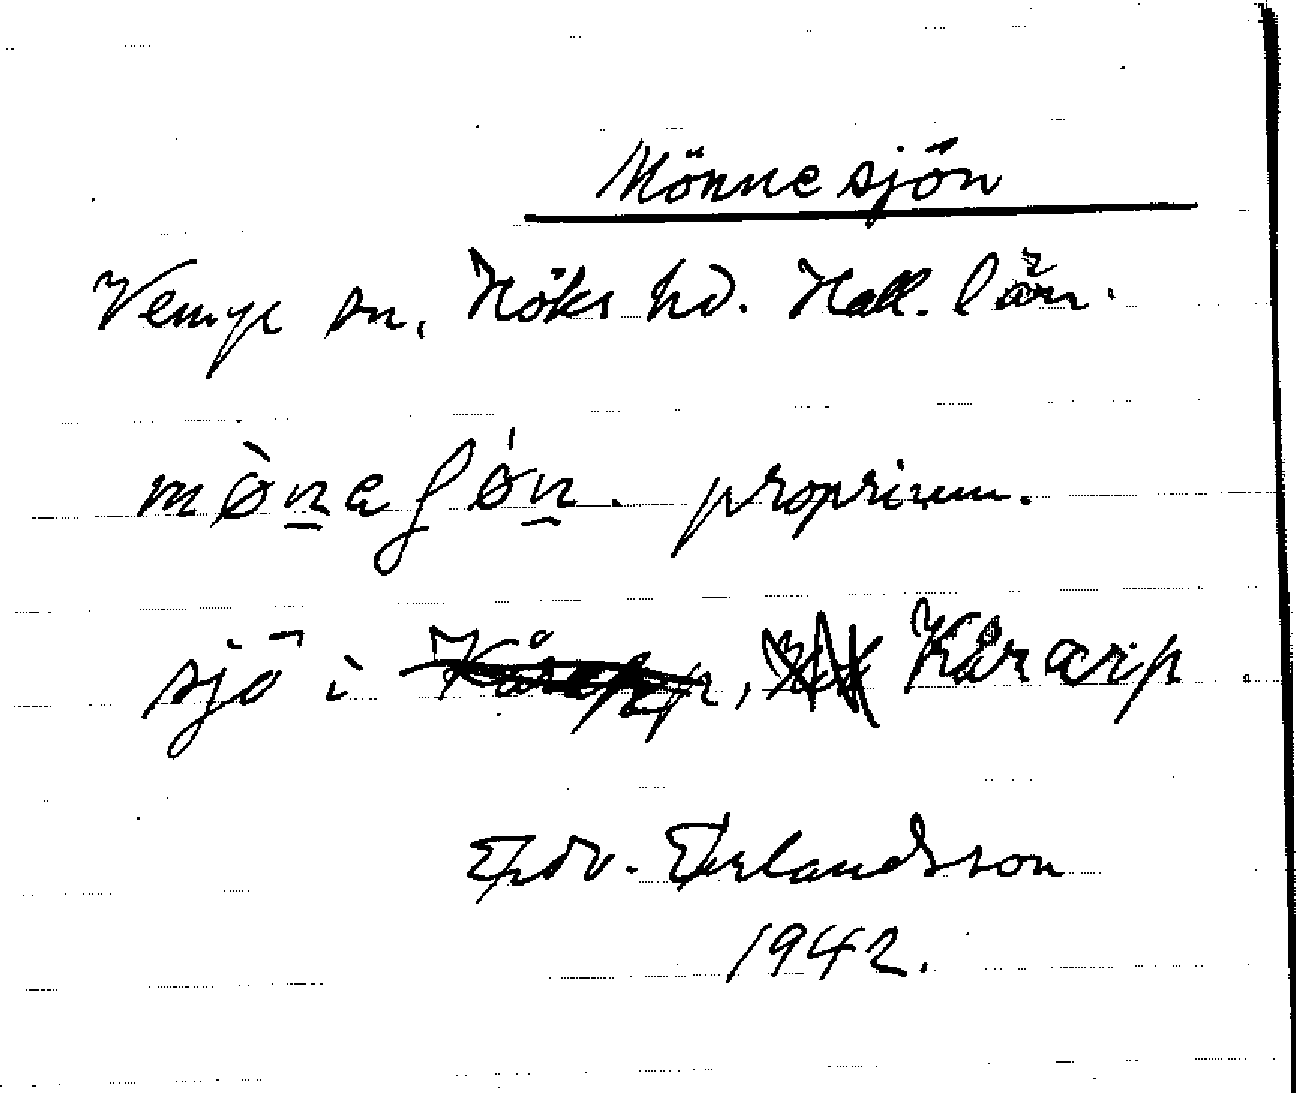 Mönnesjön
Vemge sn. Höks hd. Hall. län.
mø̀naʃøn. proprium.
sjö i Kårarp
Edv. Erlandsson
1942.